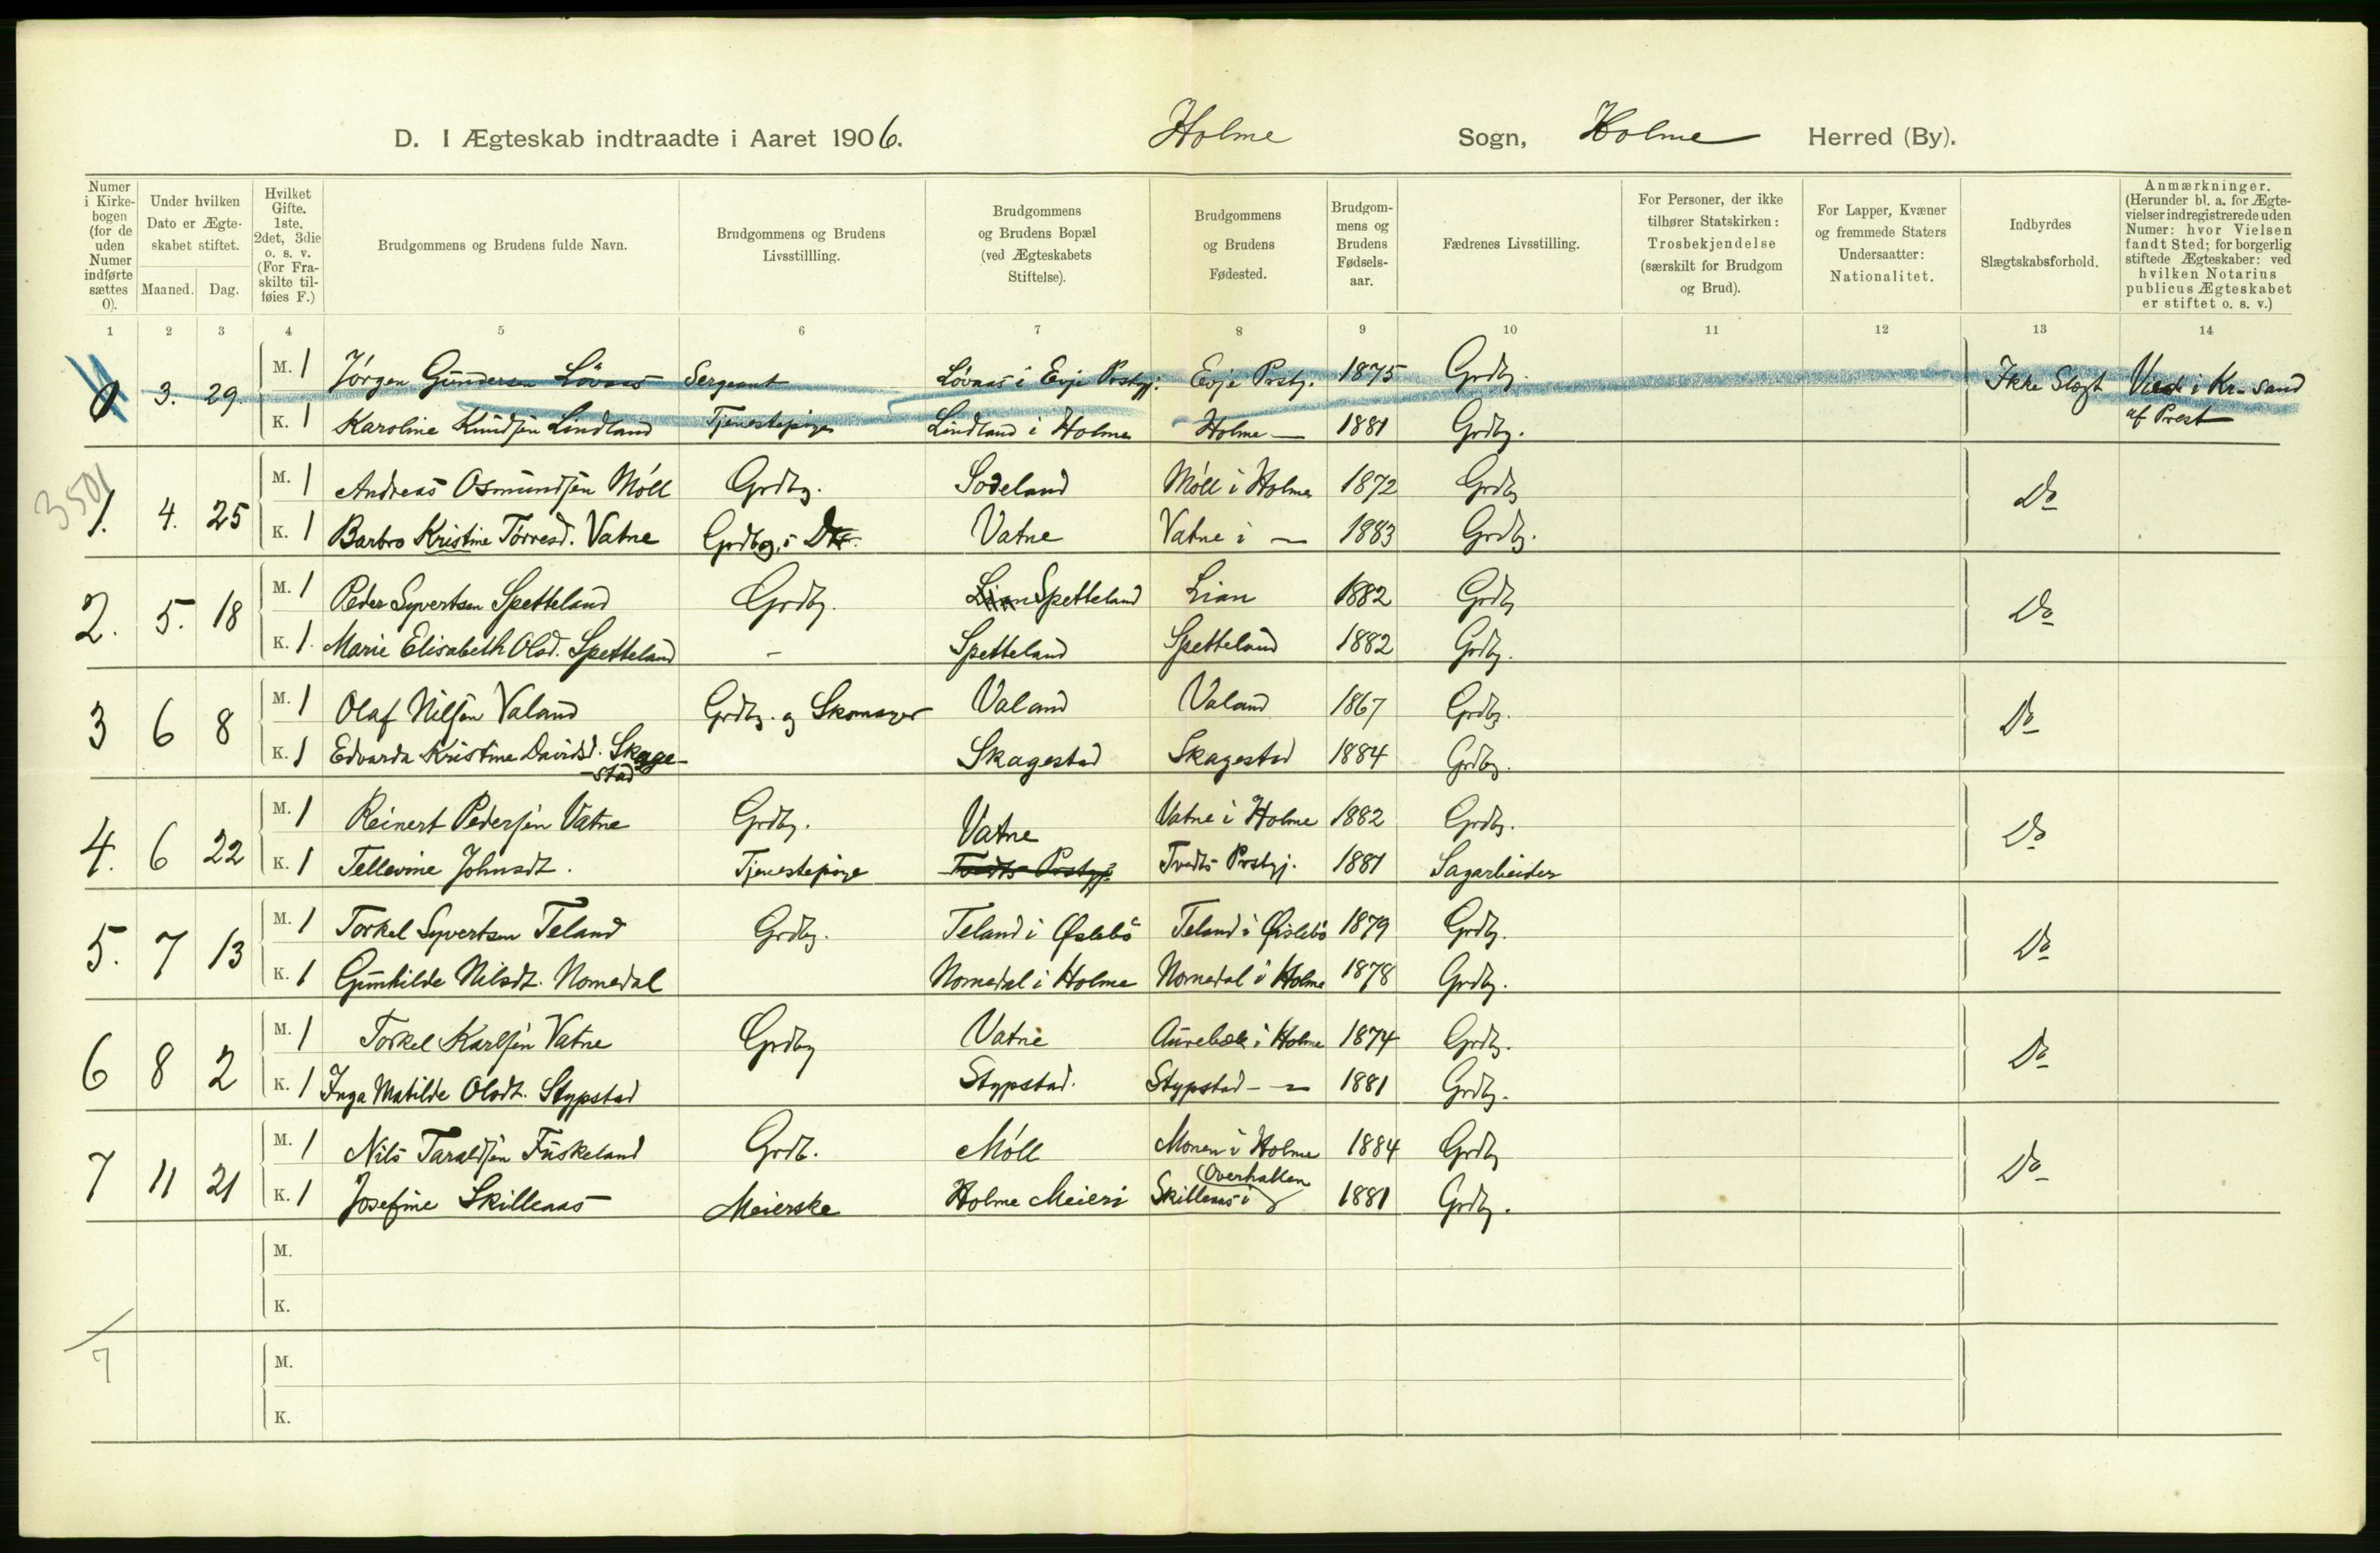 D. I Ægteskab indtraadte i Aaret 1906. Holme Sogn, Holme Herred (By).
Numer i Kirkebogen (for de uden Numer indførte sættes 0).
Under hvilken Dato er Ægteskabet stiftet.
Maaned. Dag.
Hvilket Gifte. 1ste, 2det, 3die o. s. v. (For Fraskilte tilføies F.)
Brudgommens og Brudens fulde Navn.
Brudgommens og Brudens Livsstillling.
Brudgommens og Brudens Bopæl (ved Ægteskabets Stiftelse).
Brudgommens og Brudens Fødested.
Brudgommens og Brudens Fødselsaar.
Fædrenes Livsstilling.
For Personer, der ikke tilhører Statskirken: Trosbekjendelse (særskilt for Brudgom og Brud).
For Lapper, Kvæner og fremmede Staters Undersaatter: Nationalitet.
Indbyrdes Slægtskabsforhold.
Anmærkninger. (Herunder bl. a. for Ægtevielser indregistrerede uden Numer: hvor Vielsen fandt Sted; for borgerlig stiftede Ægteskaber: ved hvilken Notarius publicus Ægteskabet er stiftet o. s. v.)
1 2 3 4 5 6 7 8 9 10 11 12 13 14
0 3. 29. M. 1 Jörgen Gundersen Lövaas Sergeant Lövaas i Evje Prstgj: Evje Prstgj. 1875 Grdbg. Ikke Slægt Viede i Kr.sand
K. 1 Karoline Knudsen Lindland Tjenestepige Lindland i Holme Holme — 1881 Grdbg. af Prest
3501
1. 4. 25 M. 1 Andreas Osmundsen Möll Grdbg. Sodeland Möll i Holme 1872 Grdbg Do
K. 1 Barbro Kristine Törresd. Vatne Grdbg.s Dtr. Vatne Vatne i — 1883 Grdbg.
2. 5. 18 M. 1 Peder Syvertsen Spetteland Grdbg. Lian Spetteland Lian 1882 Grdbg Do
K. 1. Marie Elisabeth Olsd. Spetteland – Spetteland Spetteland 1882 Grdbg.
3 6 8 M. 1 Olaf Nilsen Valand Grdbg. og Skomager Valand Valand 1867 Grdbg. Do
K. 1 Edvarda Kristine Davidsd. Skage- Skagestad Skagestad 1884 Grdbg.
-stad
4. 6 22 M. 1 Reinert Pedersen Vatne Grdbg. Vatne Vatne i Holme 1882 Grdbg. Do
K. 1 Tellevine Johnsdt. Tjenestepige Tvedts Prstgj. Tvedts Prstgj. 1881 Sagarbeider
5. 7 13 M. 1 Torkel Syvertsen Teland Grdbg. Teland i Øslebö Teland i Øislebö 1879 Grdbg. Do
K. 1 Gunhilde Nilsdt. Nomedal Nomedal i Holme Nomedal i Holme 1878 Grdbg.
6 8 2 M. 1 Torkel Karlsen Vatne Grdbg Vatne Aurebæk i Holme 1874 Grdbg. Do
K. 1 Inga Matilde Olsdt. Stypstad Stypstad. Stypstad - — 1881 Grdbg.
7 11 21 M. 1 Nils Taraldsen Fuskeland Grdb. Möll Monen i Holme 1884 Grdbg Do
K. 1 Josefine Skillenaas Meierske Holme Meieri Skillenaas i Overhallen 1881 Grdbg.
M.
K.
7 M.
K.